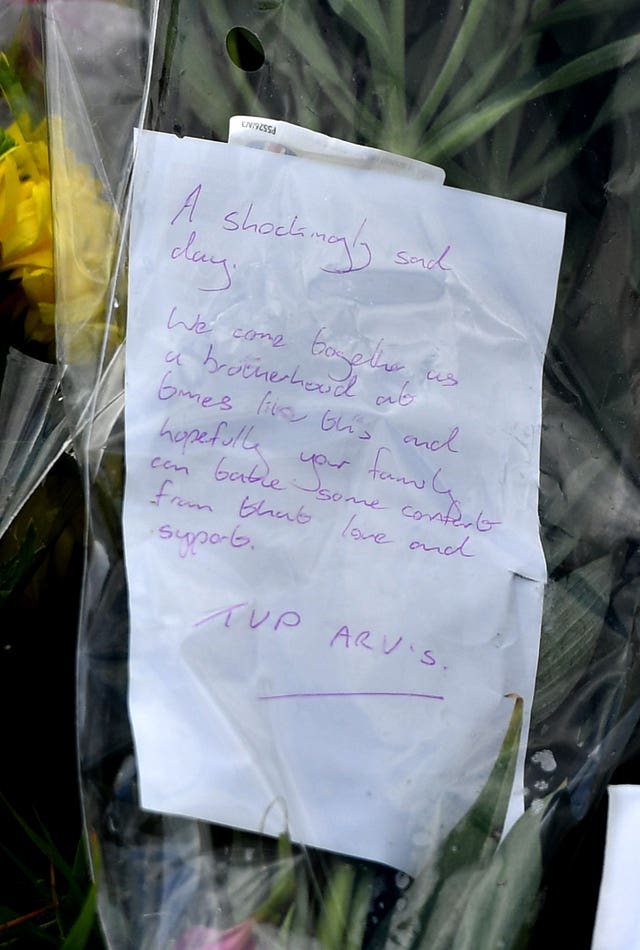 A shockingly sad
day.
We come together as
a brotherhood at
times like this and
hopefully your family
can take some comfort
from that love and
support.
TVP ARV's.